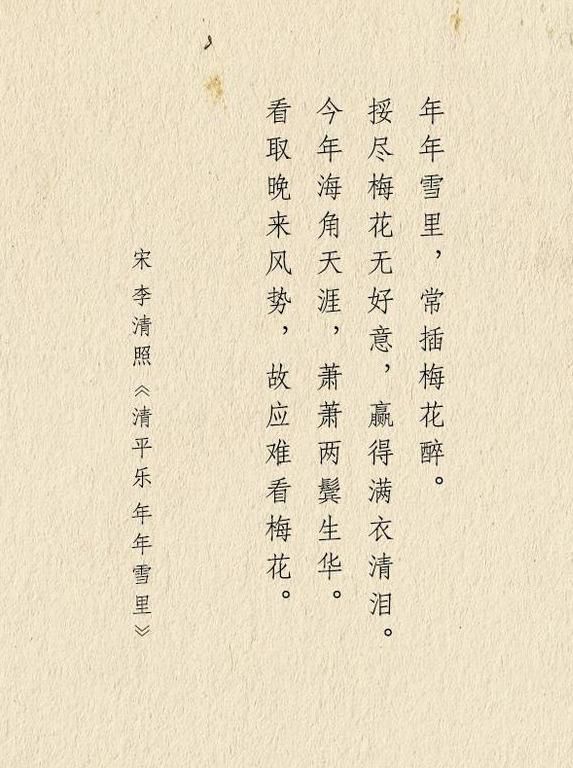 年年雪里，常插梅花醉。
挼尽梅花无好意，赢得满衣清泪。
今年海角天涯，萧萧两鬓生华。
看取晚来风势，故应难看梅花。
宋 李清照《清平乐 年年雪里》